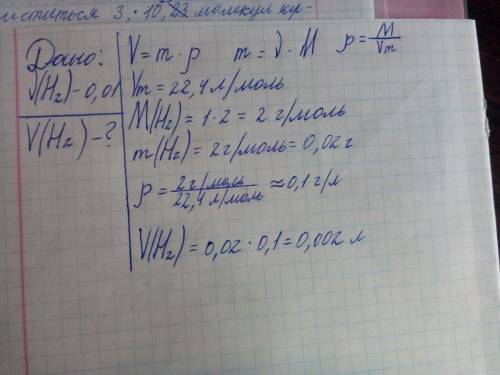 3, · 10, 22 молекул
Дано:
ν(H₂) - 0,01
V(H₂) - ?
V = m · ρ m = ν · M ρ = M/Vm
Vm = 22,4 л/моль
M(H₂) = 1 · 2 = 2 г/моль
m(H₂) = 2 г/моль = 0,02 г
ρ = 2 г/моль / 22,4 л/моль ≈ 0,1 г/л
V(H₂) = 0,02 · 0,1 = 0,002 л